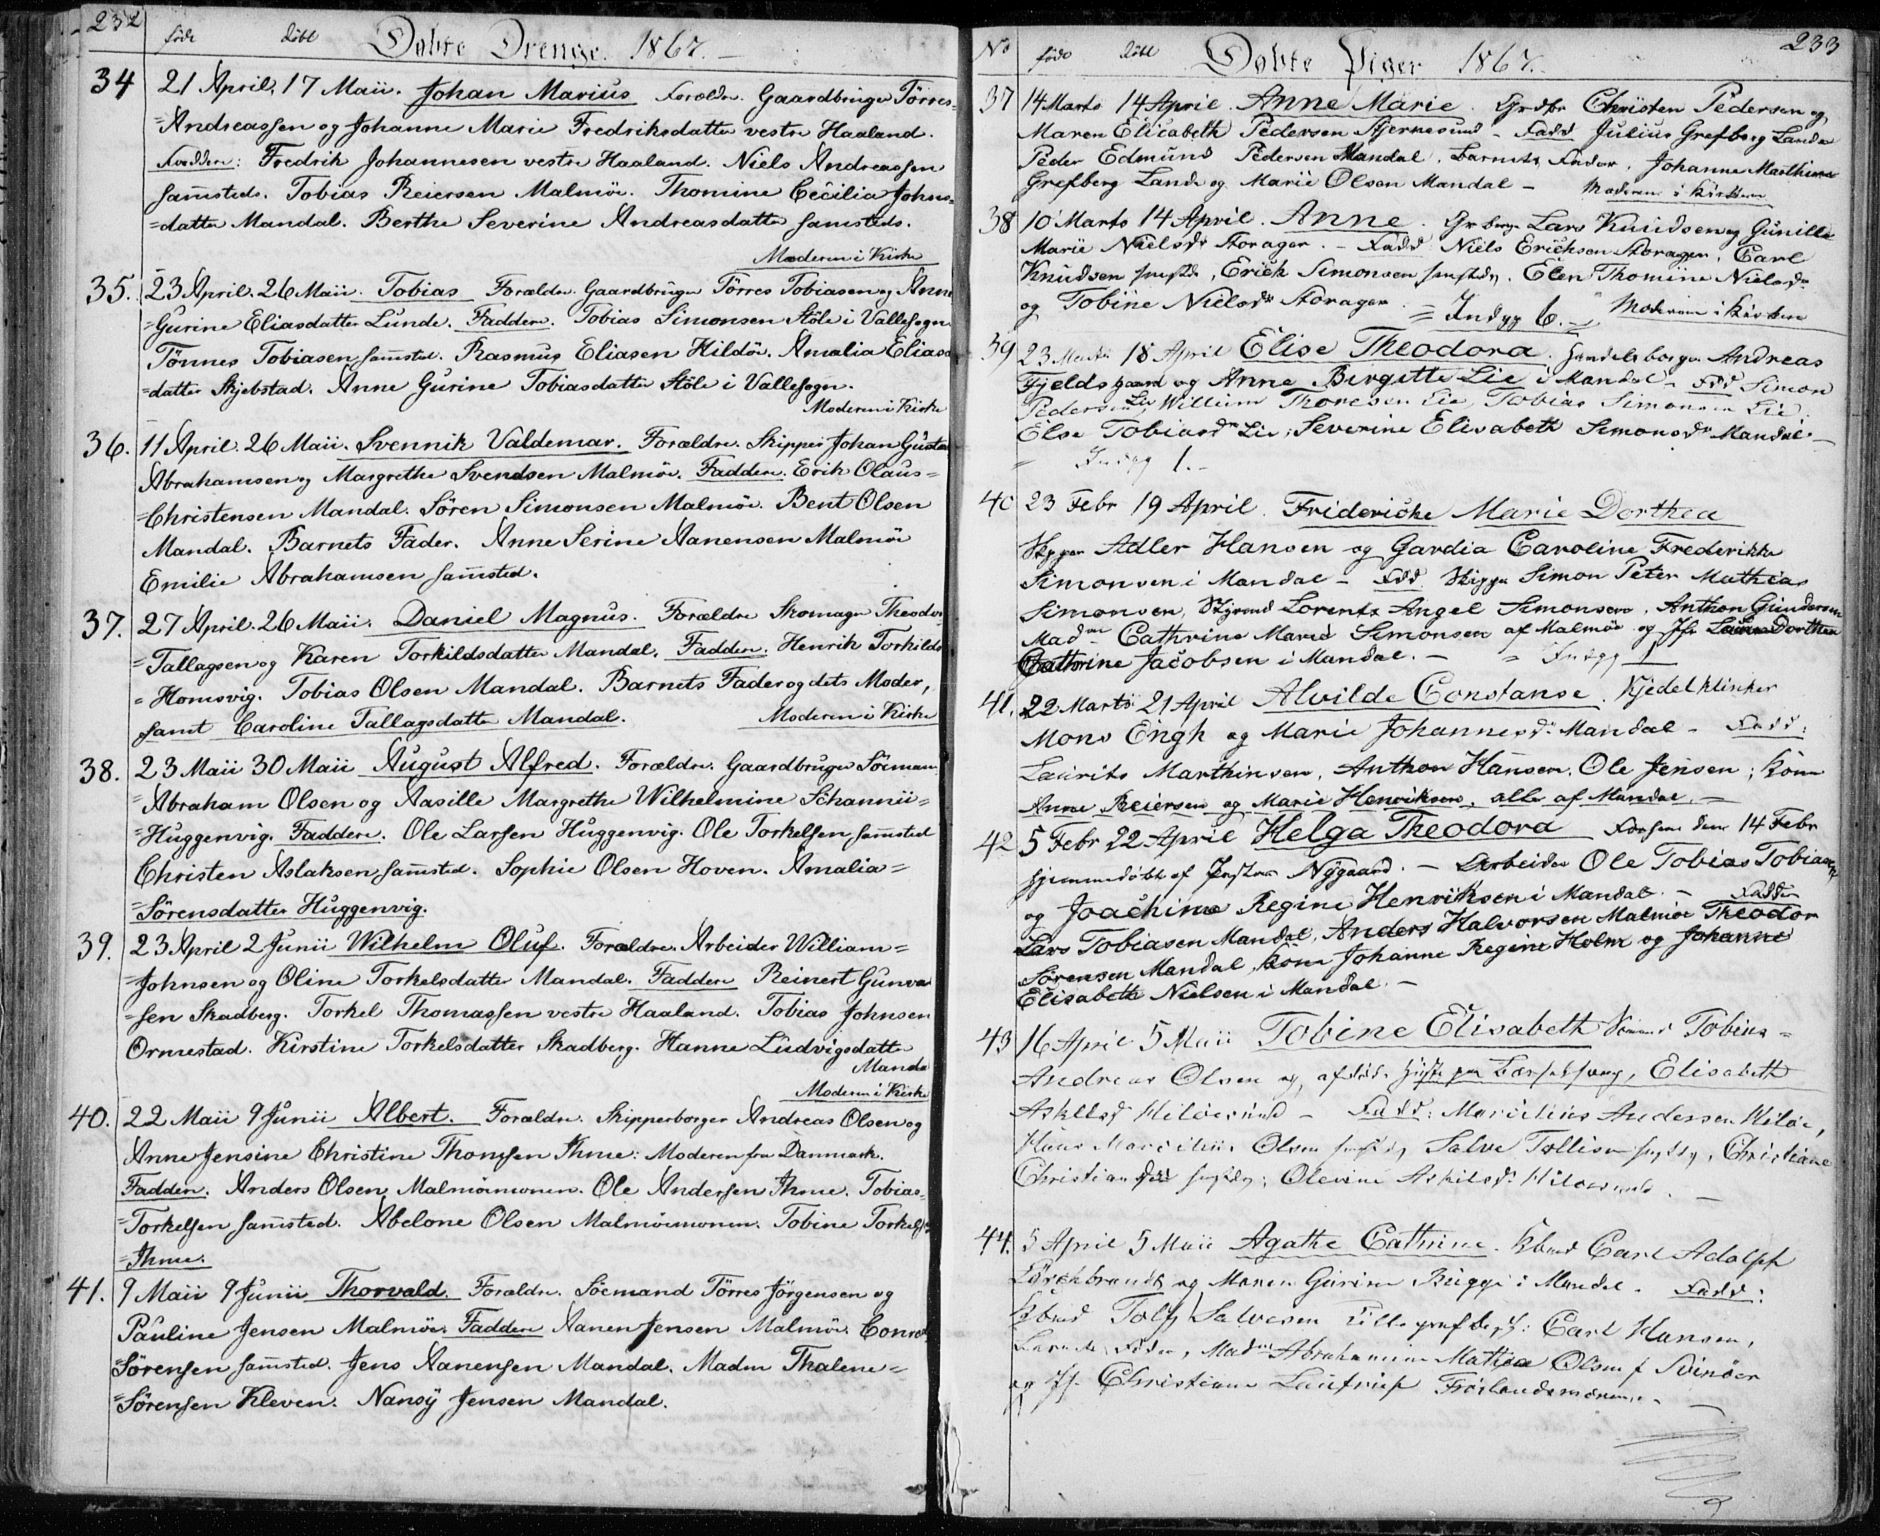 232
føde døbt Døbte Drenge. 1867.
34 21 April, 17 Maii. Johan Marius Forældre. Gaardbruger Tørres=
=Andreassen og Johanne Marie Fredriksdatter vestre Haaland.
Faddere: Fredrik Johannesen vestre Haaland. Niels Andreassen
samsteds. Tobias Reiersen Malmöe. Thomine Cecilia Johns=
=datter Mandal. Berthe Severine Andreasdatter samsteds.
Moderen i Kirke
35. 23 April. 26 Maii. Tobias Forældre. Gaardbruger Törres Tobiasen og Anne
=Gurine Eliasdatter Lunde. Faddere. Tobias Simonsen Stöle i Vallesogn
Tönnes Tobiasen samsted. Rasmus Eliasen Hildöe. Amalia Elias
=datter Skjebstad. Anne Gurine Tobiasdatter Stöle i Vallesogn.
Moderen i Kirke
36. 11 April. 26 Maii. Svennik Valdemar. Forældre. Skipper Johan Gustav
Abrahamsen og Margrethe Svendsen Malmöe. Faddere. Erik Olaus=
=Christensen Mandal. Sören Simonsen Malmöe. Bent Olsen
Mandal. Barnets Fader. Anne Serine Aanensen Malmöe
Emilie Abrahamsen samsted.
37. 27 April. 26 Maii. Daniel Magnus. Forældre Skomager Theodor
=Tallagsen og Karen Torkildsdatter Mandal. Faddere. Henrik Torkilds
=Homsvig. Tobias Olsen Mandal. Barnets Fader og dets Moder,
samt Caroline Tallagsdatter Mandal. Moderen i Kirke
38. 23 Maii 30 Maii August Alfred. Forældre. Gaardbruger Söeman
=Abraham Olsen og Aasille Margrethe Wilhelmine Schannii=
=Huggenvig. Faddere. Ole Larsen Huggenvig. Ole Torkelsen samsted
Christen Aslaksen samsted. Sophie Olsen Hoven. Amalia=
=Sörensdatter Huggenvig.
39. 23 April 2 Junii Wilhelm Oluf. Forældre. Arbeider William=
=Johnsen og Oline Torkelsdatter Mandal. Faddere Reinert Gunva
=sen Skadberg. Torkel Thomassen vestre Haaland. Tobias Johnsen
Ormestad. Kirstine Torkelsdatter Skadberg. Hanne Ludvigsdatter
Manda
Moderen i Kirke
40. 22 Maii 9 Junii Albert. Forældre. Skipperborger Andreas Olsen og
Anne Jensine Christine Thomsen Ihme: Moderen fra Danmark.
Faddere. Anders Olsen Malmöemonen. Ole Andersen Ihme. Tobias=
=Torkelsen samsted. Abelone Olsen Malmöemonen. Tobine Torkels
=Ihme.
41. 9 Maii 9 Junii Thorvald. Forældre. Söemand Törres Jörgensen og
Pauline Jensen Malmöe. Faddere Aanen Jensen Malmöe. Conrad
=Sörensen samsted. Jens Aanensen Mandal. Madm Thalene=
=Sörensen Kleven. Nansÿ Jensen Mandal.
233
No føde døbt Døbte Piger 1867.
37 14 Marts 14 April. Anne Marie. Christen Pedersen og
Maren Elisabeth Pedersen Skjernesund – Fadd Julius Grefberg Lande
Peder Edmund Pedersen Mandal, Barnets Fader, Johanne Marthine
Grefberg Lande og Marie Olsen Mandal – Moderen i Kirken
38 10 Marts 14 April. Anne. Lars Knudsen og Gunille
Marie Nielsdr Storager. – Fadd Niels Ericksen Storager. Carl
Knudsen, Erick Simonsen, Elen Thomine Nielsdr
og Tobine Nielsdr Storager. = Indgg 6. – Moderen i Kirken
39 23 Marts 18 April Elise Theodora. Handelsborger Andreas
Fjeldsgaard og Anne Birgitte Lie i Mandal – Fdd Simon
Pedersen Lie, Willium Thoresen Lie, Tobias Simonsen Lie.
Else Tobiasdr Lie, Severine Elisabeth Simonsdr Mandal. –
Indgg 1. –
40 23 Febr 19 April. Fridericke Marie Dorthea
Skipper Adler Hansen og Gardia Caroline Frederikke
Simonsen i Mandal – Fdd. Skipper Simon Peter Mathias
Simonsen, Styrmd Lorentz Angel Simonsen, Anthon Gundersen
Madm Cathrine Marie Simonsen af Malmöe og Jfr Dorthea
Cathrine Jacobsen i Mandal. – = Indgg 1
41. 22 Marts 21 April Alvilde Constanse. Kjedelklinker
Mons Engh og Marie Johannesdr Mandal – Fadd:
Laurits Marthinsen, Anthon Hansen, Ole Jensen; Kone
Anne Reiersen og Marie Henriksen, alle af Mandal. –
42 5 Febr 22 April Helga Theodora den 14 Febr
hjemmedöbt af Nÿgaard. – Arbeider Ole Tobias Tobiasen
og Joachime Regine Henriksen i Mandal. – Fadd
Lars Tobiasen Mandal, Anders Halvorsen Malmöe Theodor
Sørensen Mandal, Kone Johanne Regine Holm og Johanne
Elisabeth Nielsen i Mandal. –
43 16 April 5 Maii Tobine Elisabeth Tobias=
Andreas Olsen og, Elisabeth
Askilsd Hilöesund – Fadd: Marcelius Andersen Hilöe,
Hans Olsen, Salve Tollisen, Christiane
Christiansdr; Olevine Askilsdr Hilöesund. –
44. 3 April 5 Maii Agathe Cathrine. Carl Adolph
og Maren Gurine Bugge i Mandal – Fadd:
Salvesen; Carl Hansen,
Barnets Fader, Madm Abrahamine Mathea Olsen f Svinöer
og Jf. Christiane